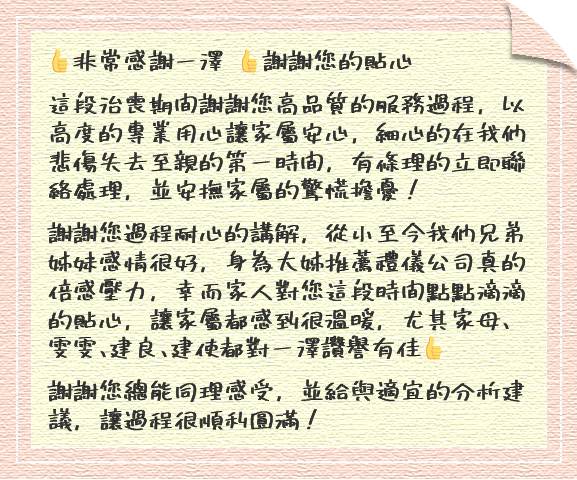 👍非常感謝一澤 👍謝謝您的貼心
這段治喪期間謝謝您高品質的服務過程，以
高度的專業用心讓家屬安心，細心的在我們
悲傷失去至親的第一時間，有條理的立即聯
絡處理，並安撫家屬的驚慌擔憂！
謝謝您過程耐心的講解，從小至今我們兄弟
姊妹感情很好，身為大姊推薦禮儀公司真的
倍感壓力，幸而家人對您這段時間點點滴滴
的貼心，讓家屬都感到很溫暖，尤其家母、
雯雯、建良、建使都對一澤讚譽有佳👍
謝謝您總能同理感受，並給與適宜的分析建
議，讓過程很順利圓滿！